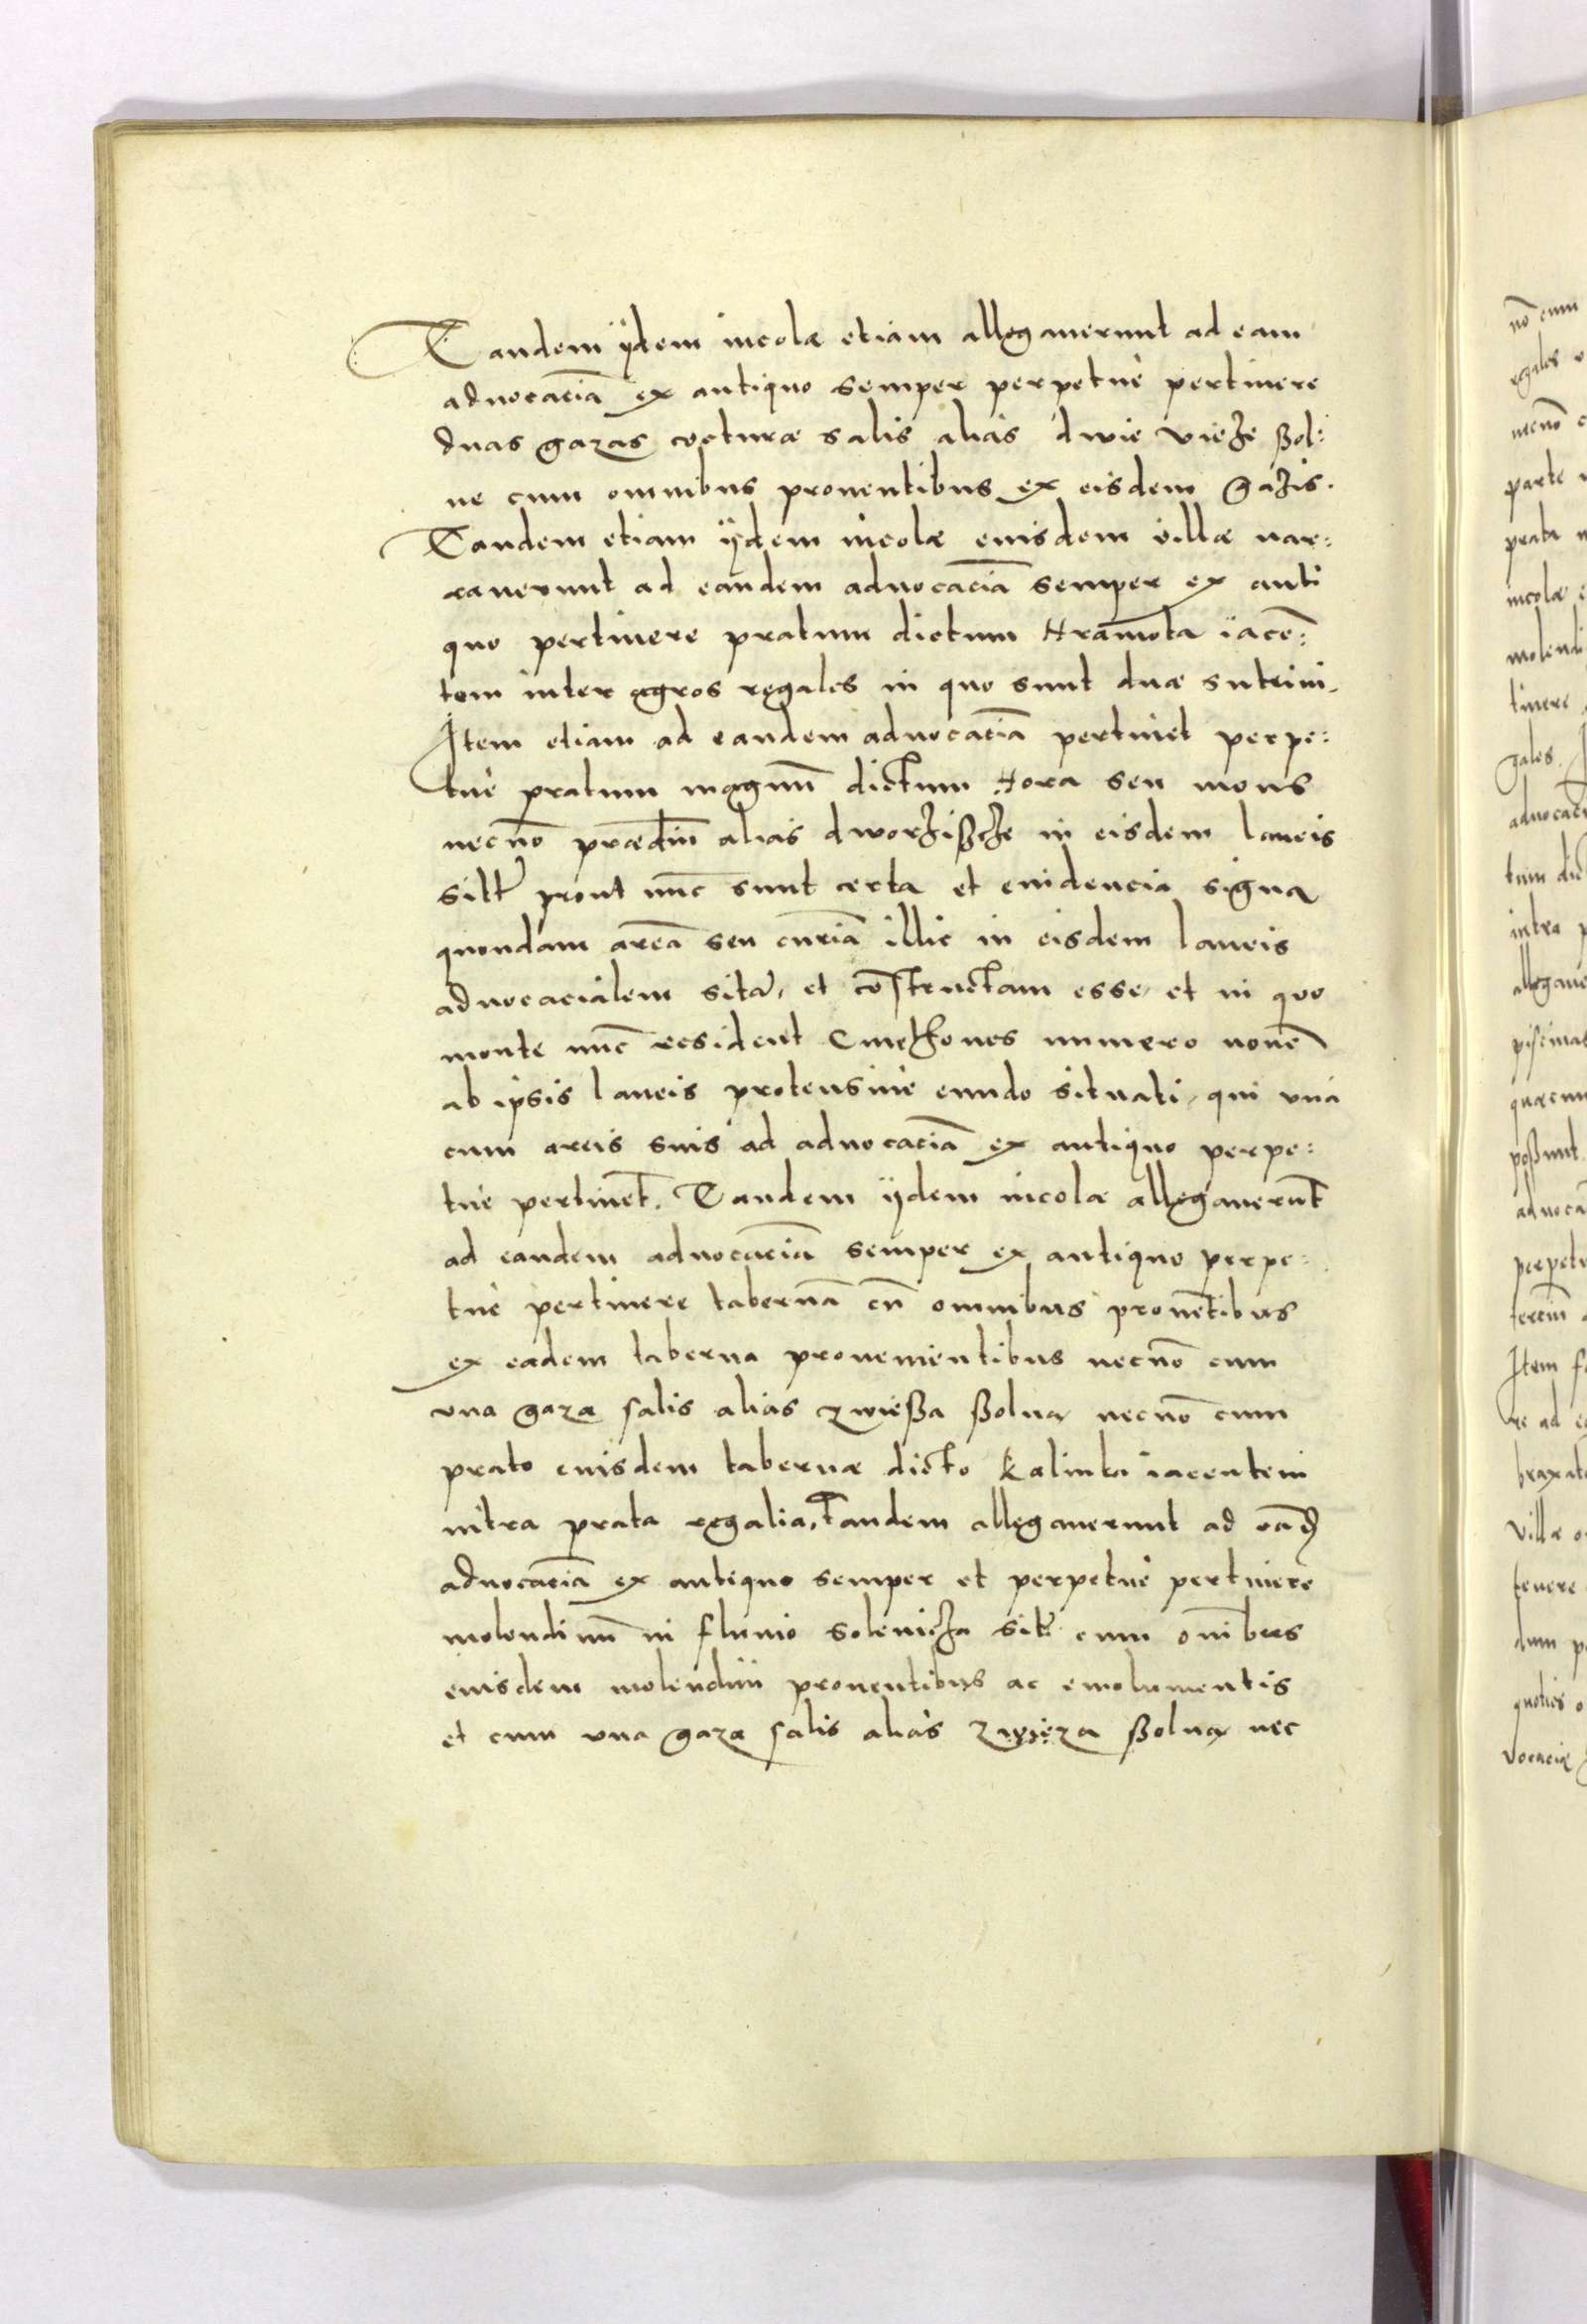 Tandem ÿdem incolæ etiam allegauerunt ad eam
aduocaciā ex antiquo semper perpetuè pertinere
duas gazas cocturæ salis aliàs dwie vieże ßol:
ne cum omnibus prouentibus ex eisdem Gazis.
Tandem etiam ÿdem incolæ euisdem villæ nar:
rauerunt ad eandem aduocaciā semper ex anti
quo pertinere pratum dictum Hramota iacē:
tem inter agros regales in quo sunt duæ
Item etiam ad eandem aduocaciā pertinet perpe:
tuè pratum magnū dictum Hora seu mons
necnō prædiū aliàs dworzißcze in eisdem laneis
prout nūc sunt certa et euidencia signa
quondam areā seu curiā illic in eisdem laneis
aduocacialem sitā, et cōstructam esse, et in quo
monte nūc resident Cmethones numero nouē
ab ipsis laneis protensiue eundo situati, qui vnà
cum areis suis ad aduocaciā ex antiquo perpe:
tuè pertinēt. Tandem ÿdem incolæ allegauerūt
ad eandem aduocaciā semper ex antiquo perpe:
tuè pertinere tabernā cū omnibus prouētibus
ex eadem taberna prouenientibus necnō cum
vna gaza salis aliàs zwießa ßolna necnō cum
prato euisdem tabernæ dicto Kalinka iacentem
intra prata regalia, Tandem allegauerunt ad eād
aduocaciā ex antiquo semper et perpetuè pertinere
molendinū in fluuio Solenicza sit̄ cum oīnibus
euisdem molendini prouentibus ac emolumentis
et cum vna gaza salis aliàs zwieza ßolna nec
nō cum
regales
necnō
parte
prata
incolæ
molendi
tinere
gales.
aduocac
tum
intra
allegaue
piscinas
quæcun
poßunt
aduoca
perpetu
Item
re ad
villæ
tenere
dum
quoties
vocaciæ